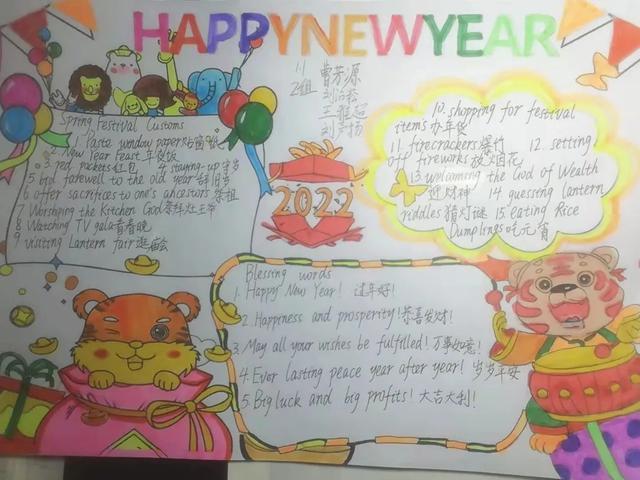 HAPPYNEWYEAR
2组
2022
Spring Festival Customs
1. Paste window paper贴窗纸
2. New Year Feast 年夜饭
3 red packets红包 4 staying-up 守岁
5 bid farewell to the old year 辞旧岁
6 offer sacrifices to one's ancestors 祭祖
7 Worshiping the Kitchen God祭拜灶王爷
8 Watching TV gala看春晚
9 visiting Lantern fair逛庙会
10. shopping for festival
items办年货
11 firecrackers爆竹 12. setting
off fireworks放烟花
13 welcoming the God of Wealth
迎财神 14. guessing lantern
riddles猜灯谜 15 eating Rice
Dumplings吃元宵
Blessing words
1. Happy New Year! 过年好!
2. Happiness and prosperity!恭喜发财!
3. May all your wishes be fulfilled! 万事如意!
4. Ever lasting peace year after year! 岁岁平安
5. Big luck and big profits! 大吉大利!